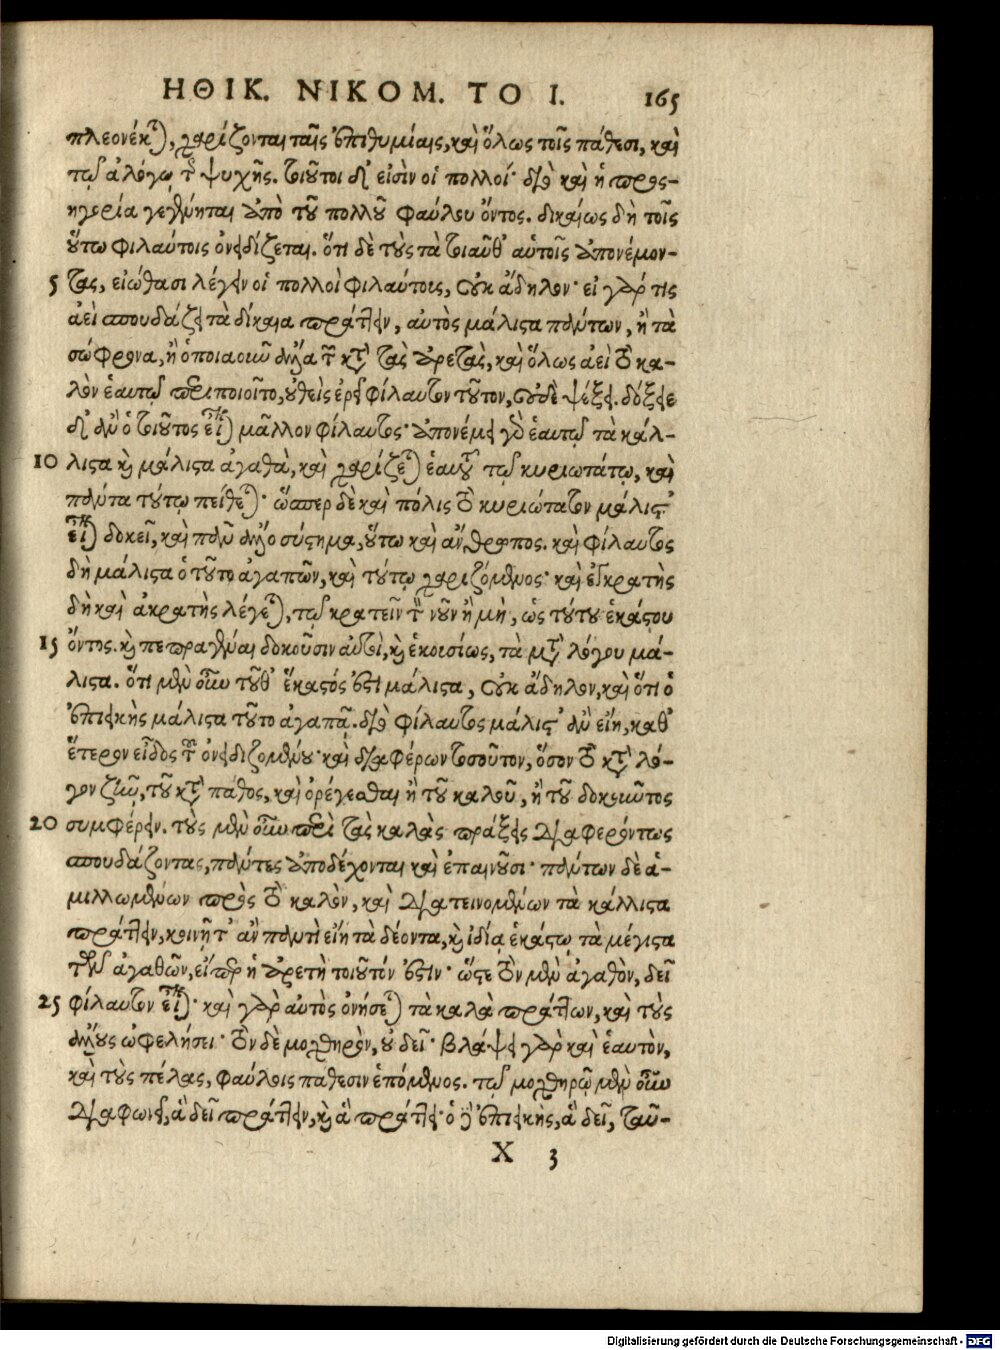 ΗΘΙΚ. ΝΙΚΟΜ. ΤΟ Ι. 165
πλεονέκται, χαρίζονται ταῖς ἐπιθυμίαις, καὶ ὅλως τοῖς πάθεσι, καὶ
τῷ ἀλόγῳ τῆς ψυχῆς. τοιοῦτοι δ' εἰσὶν οἱ πολλοί· διὸ καὶ ἡ προσ-
ηγορία γεγένηται ἀπὸ τοῦ πολλοῦ φαύλου ὄντος. δικαίως δὴ τοῖς
οὕτω φιλαύτοις ὀνειδίζεται. ὅτι δὲ τοὺς τὰ τοιαῦθ' αὑτοῖς ἀπονέμον-
5 τας, εἰώθασι λέγειν οἱ πολλοὶ φιλαύτους, οὐκ ἄδηλον· εἰ γάρ τις
ἀεὶ σπουδάζει τὰ δίκαια πράττειν, αὐτὸς μάλιστα πάντων, ἢ τὰ
σώφρονα, ἢ ὁποιαοιοῦν ἄλλα τῶν κατὰ τὰς ἀρετὰς, καὶ ὅλως ἀεὶ τὸ κα-
λὸν ἑαυτῷ περιποιοῖτο, οὐθεὶς ἐρεῖ φίλαυτον τοῦτον, οὐδὲ ψέξει. δόξειε
δ' ἂν ὁ τοιοῦτος εἶναι μᾶλλον φίλαυτος· ἀπονέμει γὰρ ἑαυτῷ τὰ κάλ-
10 λιστα καὶ μάλιστα ἀγαθὰ, καὶ χαρίζεται ἑαυτοῦ τῷ κυριωτάτῳ, καὶ
πάντα τούτῳ πείθεται· ὥσπερ δὲ καὶ πόλις τὸ κυριώτατον μάλιστ'
εἶναι δοκεῖ, καὶ πᾶν ἄλλο σύστημα, οὕτω καὶ ἄνθρωπος. καὶ φίλαυτος
δὴ μάλιστα ὁ τοῦτο ἀγαπῶν, καὶ τούτῳ χαριζόμενος· καὶ ἐγκρατὴς
δὴ καὶ ἀκρατὴς λέγεται, τῷ κρατεῖν τὸν νοῦν ἢ μὴ, ὡς τούτου ἑκάστου
15 ὄντος. καὶ πεπραγέναι δοκοῦσιν αὐτοὶ, καὶ ἑκουσίως, τὰ μετὰ λόγου μά-
λιστα. ὅτι μὲν οὖν τοῦθ' ἕκαστός ἐστι μάλιστα, οὐκ ἄδηλον, καὶ ὅτι ὁ
ἐπιεικὴς μάλιστα τοῦτο ἀγαπᾷ. διὸ φίλαυτος μάλιστ' ἂν εἴη, καθ'
ἕτερον εἶδος τοῦ ὀνειδιζομένου· καὶ διαφέρων τοσοῦτον, ὅσον τὸ κατὰ λό-
γον ζῆν, τοῦ κατὰ πάθος, καὶ ὀρέγεσθαι ἢ τοῦ καλοῦ, ἢ τοῦ δοκοῦντος
20 συμφέρειν. τοὺς μὲν οὖν περὶ τὰς καλὰς πράξεις διαφερόντως
σπουδάζοντας, πάντες ἀποδέχονται καὶ ἐπαινοῦσι· πάντων δὲ ἁ-
μιλλωμένων πρὸς τὸ καλὸν, καὶ διατεινομένων τὰ κάλλιστα
πράττειν, κοινῇ τ' ἂν παντὶ εἴη τὰ δέοντα, καὶ ἰδίᾳ ἑκάστῳ τὰ μέγιστα
τῶν ἀγαθῶν, εἴπερ ἡ ἀρετὴ τοιοῦτόν ἐστιν· ὥστε τὸν μὲν ἀγαθὸν, δεῖ
25 φίλαυτον εἶναι· καὶ γὰρ αὐτὸς ὀνήσεται τὰ καλὰ πράττων, καὶ τοὺς
ἄλλους ὠφελήσει· τὸν δὲ μοχθηρὸν, οὐ δεῖ· βλάψει γὰρ καὶ ἑαυτὸν,
καὶ τοὺς πέλας, φαύλοις πάθεσιν ἑπόμενος. τῷ μοχθηρῷ μὲν οὖν
διαφωνεῖ, ἃ δεῖ πράττειν, καὶ ἃ πράττει· ὁ δὲ ἐπιεικὴς, ἃ δεῖ, ταῦ-
X 3
Digitalisierung gefördert durch die Deutsche Forschungsgemeinschaft - DFG